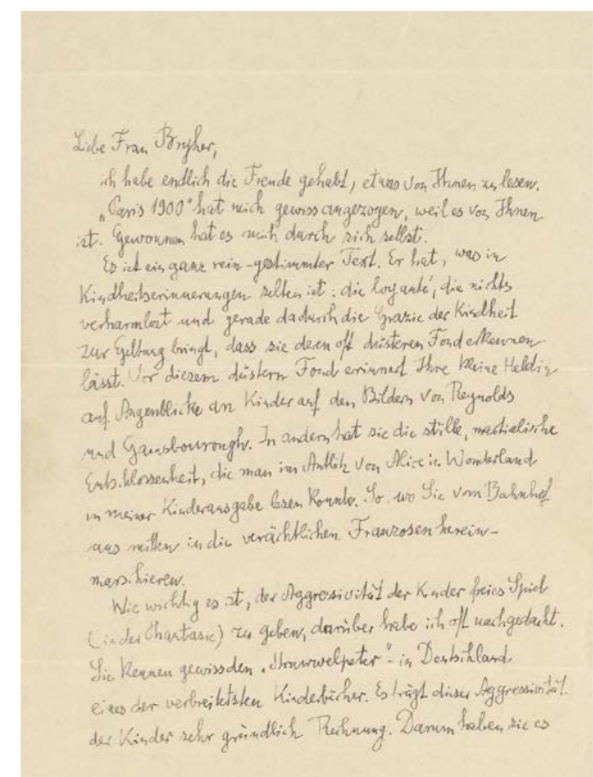 Liebe Frau Bryher,
ich habe endlich die Freude gehabt, etwas von Ihnen zu lesen.
„Paris 1900" hat mich gewiss angezogen, weil es von Ihnen
ist. Gewonnen hat es mich durch sich selbst.
Es ist ein ganz rein-gestimmter Text. Er hat, was in
Kindheitserinnerungen selten ist: die loyauté, die nichts
verharmlost und gerade dadurch die Grazie der Kindheit
zur Geltung bringt, dass sie deren oft düsteren Fond erkennen
lässt. Vor diesem düstern Fond erinnert Ihre kleine Heldin
auf Augenblicke an Kinder auf den Bildern von Reynolds
und Gainsbourough. In andern hat sie die stille, martialische
Entschlossenheit, die man im Antlitz von Alice in Wonderland
in meiner Kinderausgabe lesen konnte. So wo Sie vom Bahnhof
aus mitten in die verächtlichen Franzosen herein-
marschieren.
Wie wichtig es ist, der Aggressivität der Kinder freies Spiel
(in der Phantasie) zu geben, darüber habe ich oft nachgedacht.
Sie kennen gewiss den „Struwwelpeter" - in Deutschland
eines der verbreitetsten Kinderbücher. Es trägt dieser Aggressivität
der Kinder sehr gründlich Rechnung. Darum haben sie es